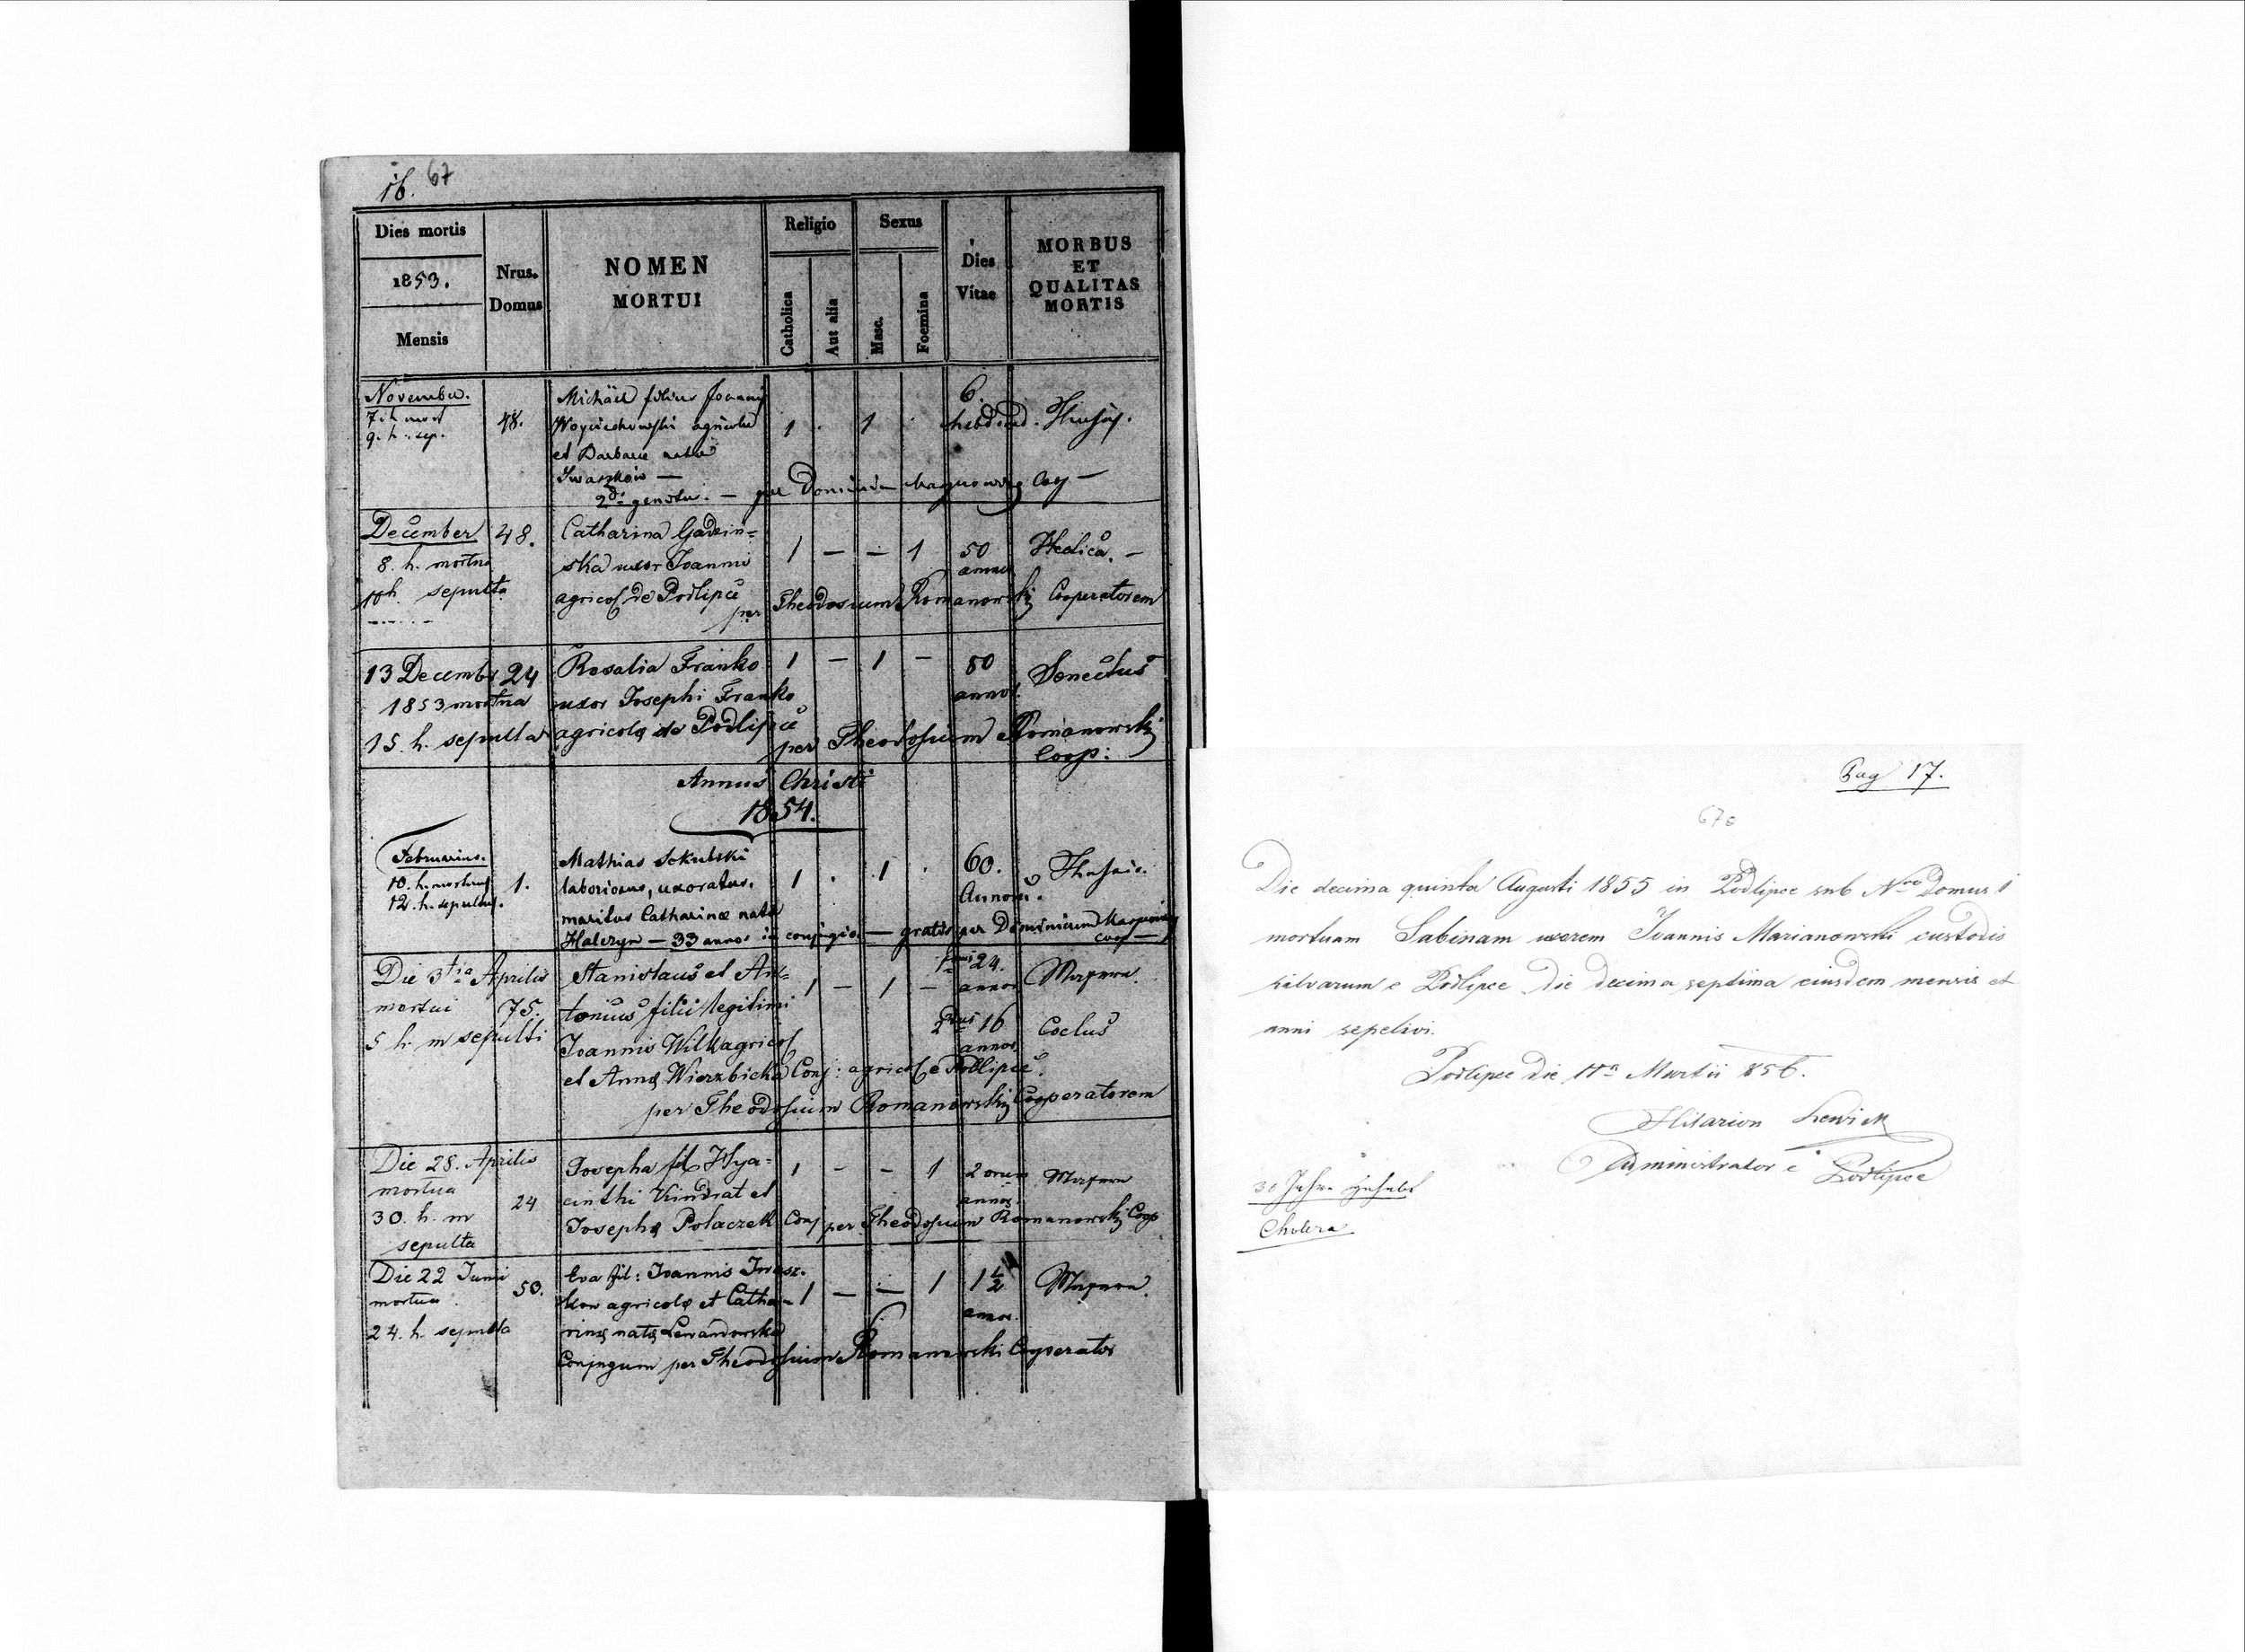 16. 67
Dies mortis
1853.
Mensis
Nrus.
Domus
NOMEN
MORTUI
Religio
Catholica
Aut alia
Sexus
Masc.
Foemina
Dies
Vitae
MORBUS
ET
QUALITAS
MORTIS
November.
7. h. mort
9. h. sep.
48.
Michäel filius Joannis
Woyciechowski agricolae
et Barbarae natae
Iwaszków —
2do genitu. — per Dominium Coop —
1 . 1 .
6.
hebdomad.
December 48. Catharina Gadzin=
8. h. mortua ska uxor Joannis
10 h. sepulta agricol de Podlipce
per Theodosium Romanowski Cooperatorem
1 — — 1 50
annor
Hectica. —
13 Decembr 24 Rosalia Franko 1 — 1 — 80 Senectus
1853 mortua uxor Josephi Franko annor.
15. h. sepulta agricolę de Podlipce
per Theodosium Romanowski
Coop:
Annus Christi
1854.
Februarius.
10. h. mortuus 1.
12. h. sepultus.
Mathias Sokulski
laboriosus, uxoratus.
maritus Catharinæ natæ
Haleryn — 33 annos in conjugio — gratis per Dominium
coop —
1 . 1 . 60.
Annorum.
Die 3tia Aprilis Stanislaus et An=
mortui 75. tonius filii legitimi
5 h. m sepulti Joannis Wilk agricol
et Annę Wierzbicka Conj: agricol e Podlipce.
per Theodosium Romanowski Cooperatorem
1 — 1 — 1mus 24.
annor
2dus 16
annor
Coelus
Die 28. Aprilis Josepha fil Hya=
mortua 24 cinthi Kindrat et
30. h. m Josephę Polaczek Conj per Theodosium Romanowski Coop
sepulta
1 — — 1 2 orum
annor.
Die 22 Junii 50. Eva fil: Joannis Iwasz.
mortua kow agricolę et Catha-
24. h. sepulta rinę natę Lewandowska
Conjugum per Theodosium Romanowski Cooperator
1 — — 1 1 1/2
annor.
Pag 17.
67a
Die decima quinta Augusti 1855 in Podlipce sub Nro Domus 1
mortuam Sabinam uxorem Joannis Marianowski custodis
silvarum e Podlipce die decima septima eiusdem mensis et
anni sepelivi.
Podlipce die 11a Martii 856.
Hilarion Lewick
Administrator e Podlipce
30 Jahre
Cholera